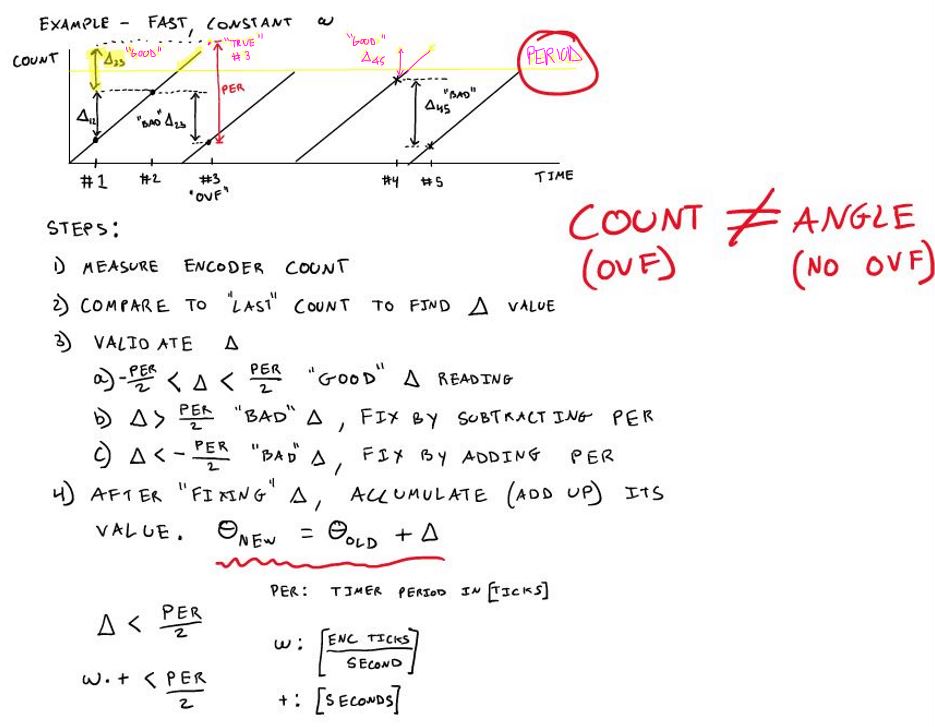 EXAMPLE - FAST, CONSTANT ω
COUNT
Δ23 "GOOD"
"TRUE" #3
"GOOD" Δ45
PERIOD
PER
Δ12
"BAD" Δ23
Δ45 "BAD"
#1 #2 #3 #4 #5 TIME
"OVF"
COUNT ≠ ANGLE
(OVF) (NO OVF)
STEPS:
1) MEASURE ENCODER COUNT
2) COMPARE TO "LAST" COUNT TO FIND Δ VALUE
3) VALIDATE Δ
a) -PER/2 < Δ < PER/2 "GOOD" Δ READING
b) Δ > PER/2 "BAD" Δ, FIX BY SUBTRACTING PER
c) Δ < -PER/2 "BAD" Δ, FIX BY ADDING PER
4) AFTER "FIXING" Δ, ACCUMULATE (ADD UP) ITS
VALUE. θNEW = θOLD + Δ
PER: TIMER PERIOD IN [TICKS]
Δ < PER/2
ω: [ENC TICKS/SECOND]
ω·t < PER/2
t: [SECONDS]